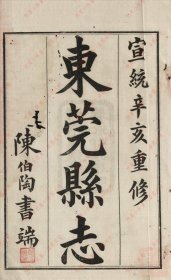 宣統辛亥重修
東莞縣志
陳伯陶書端